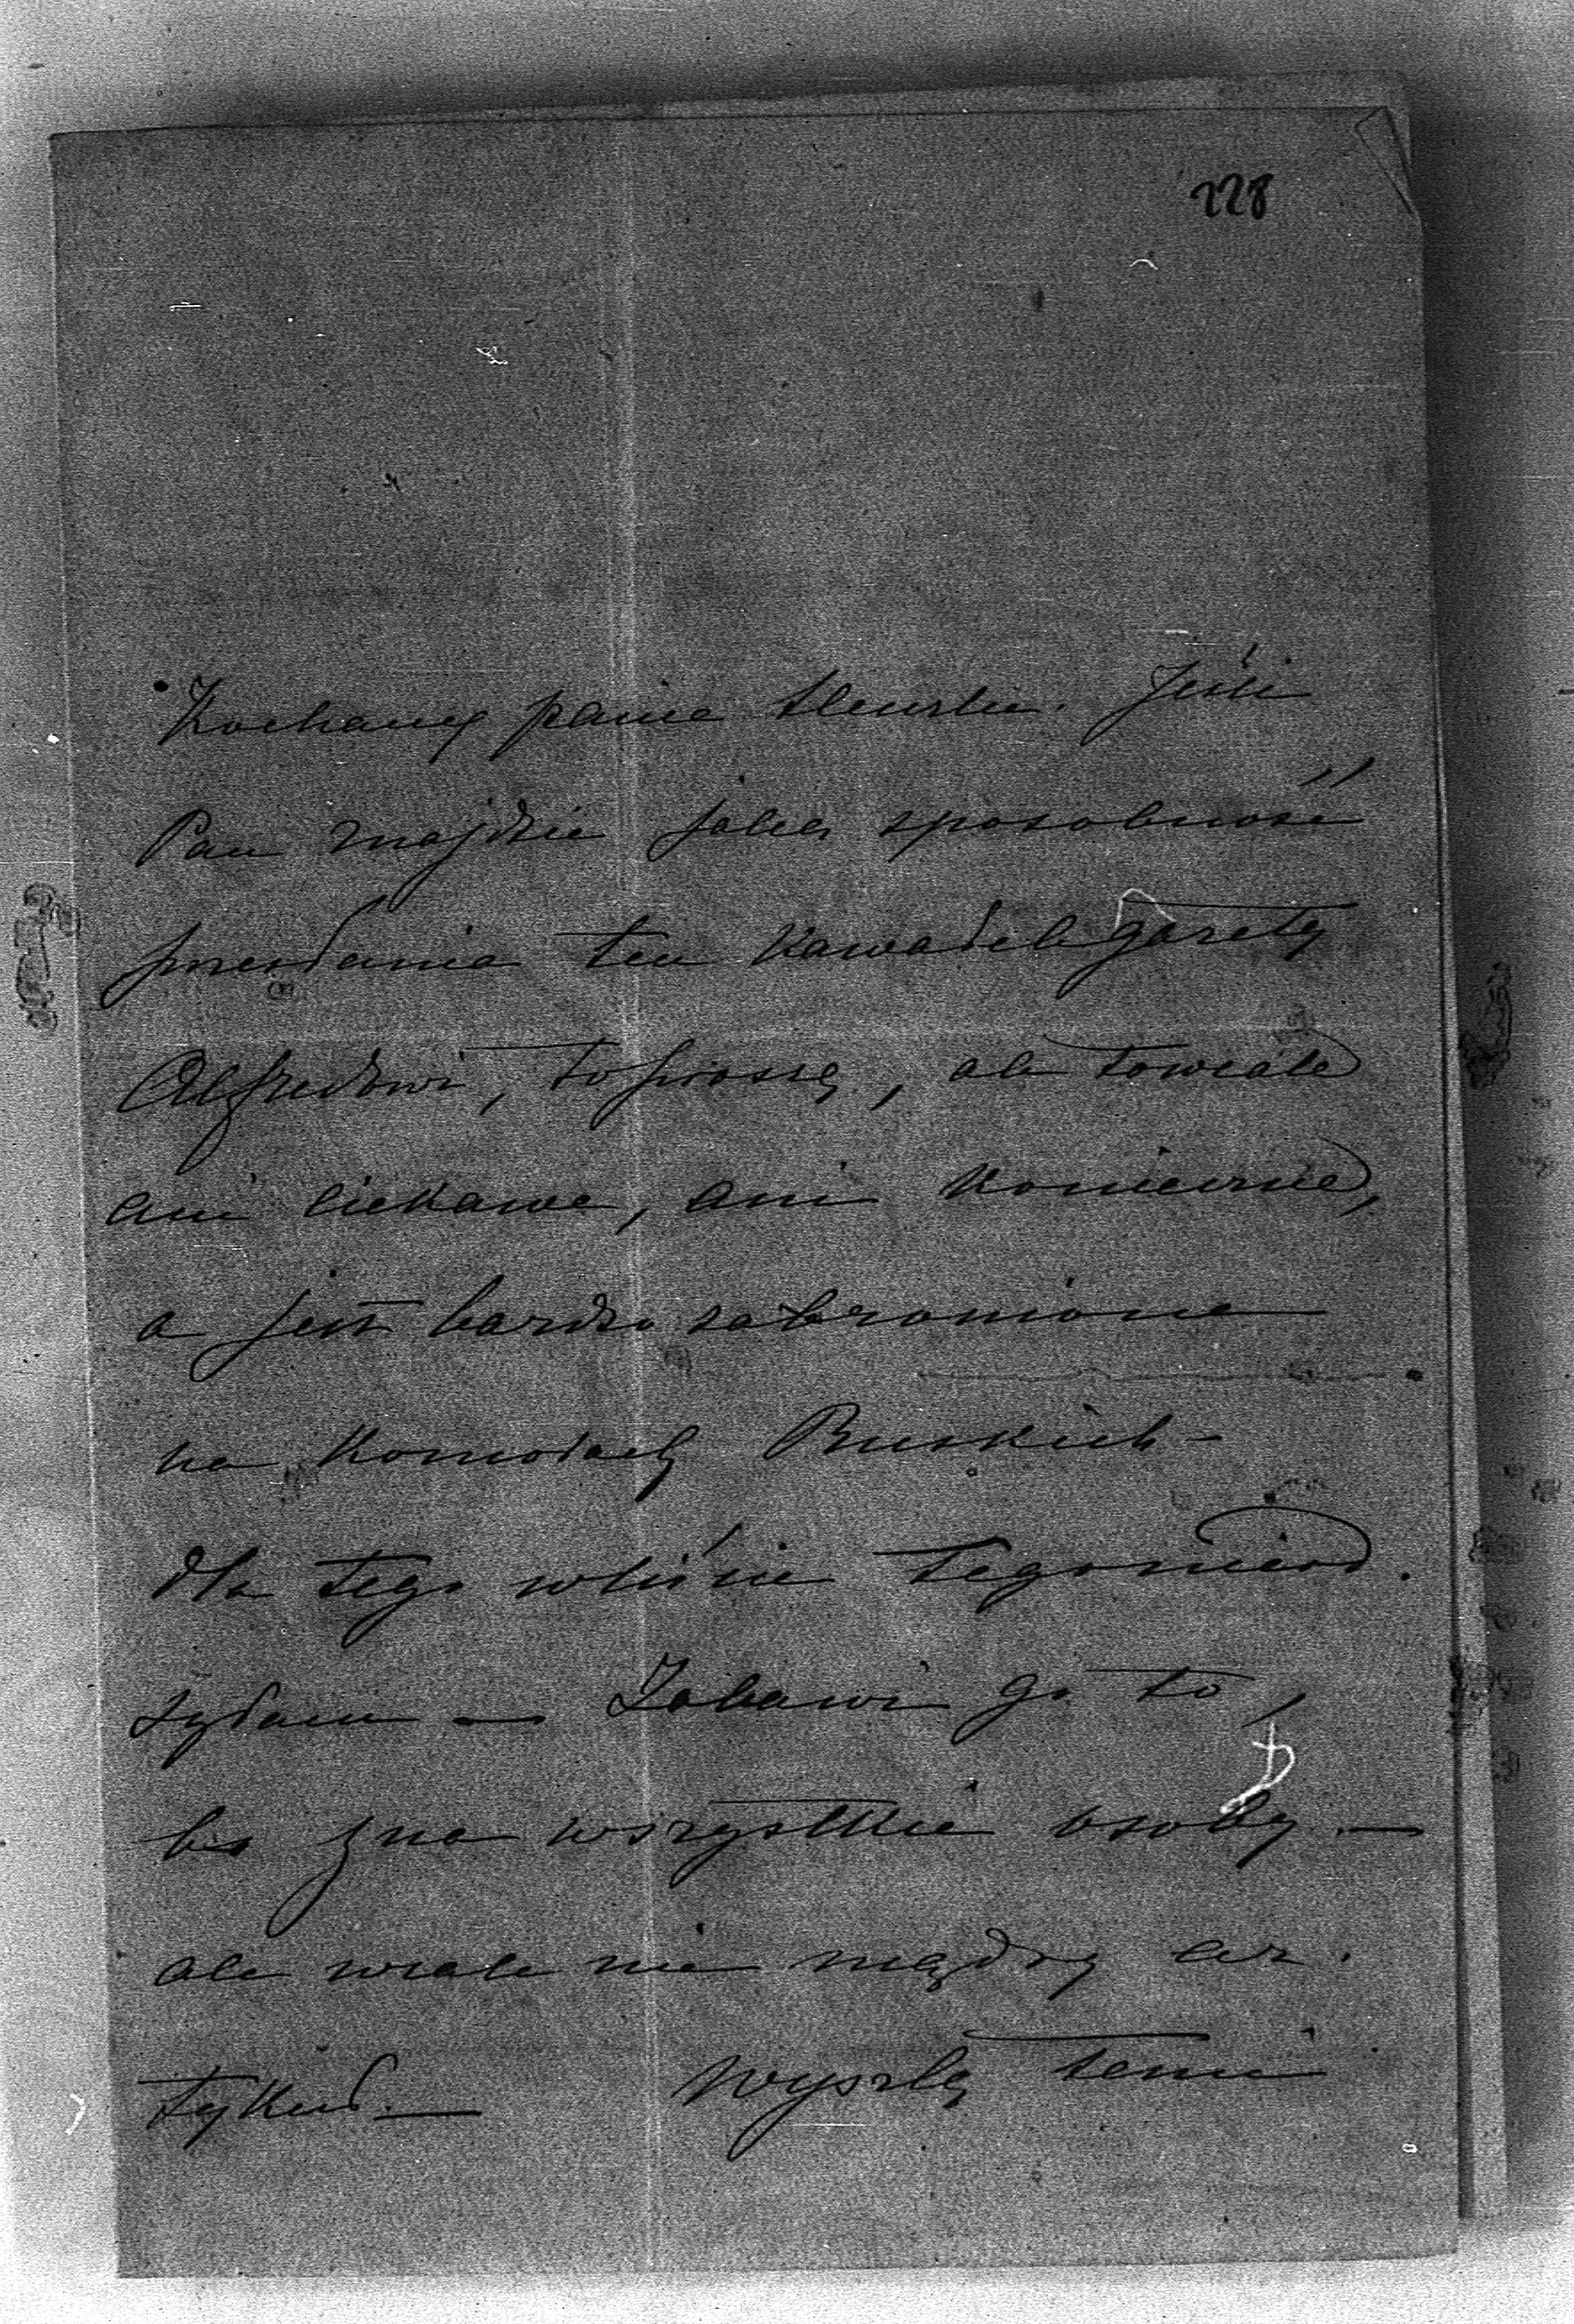 228
Kochany panie Jeśli
Pan znajdzie jaką sposobność
przesłania ten kawałek gazety
Alfredowi, to proszę, ale to wcale
ani ciekawe, ani konieczne,
a jest bardzo zabronione
na komorach Ruskich –
dla tego właśnie tego nie od.
syłam — Zabawi go to,
bo zna wszystkie osoby —
ale wcale nie mądry ar.
tykuł. — Wyszlę temi